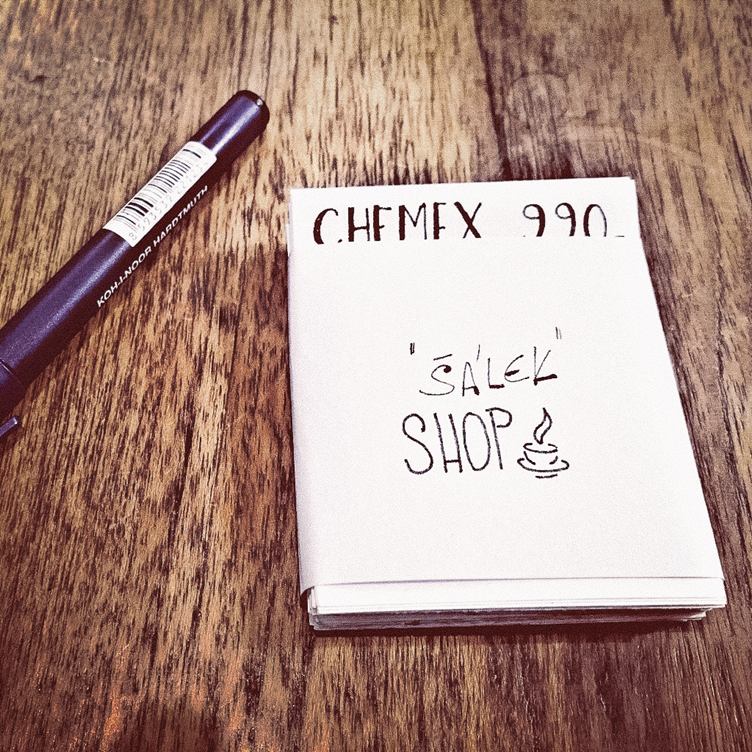 CHEMEX 990
"ŠÁLEK"
SHOP
KOH-I-NOOR HARDTMUTH